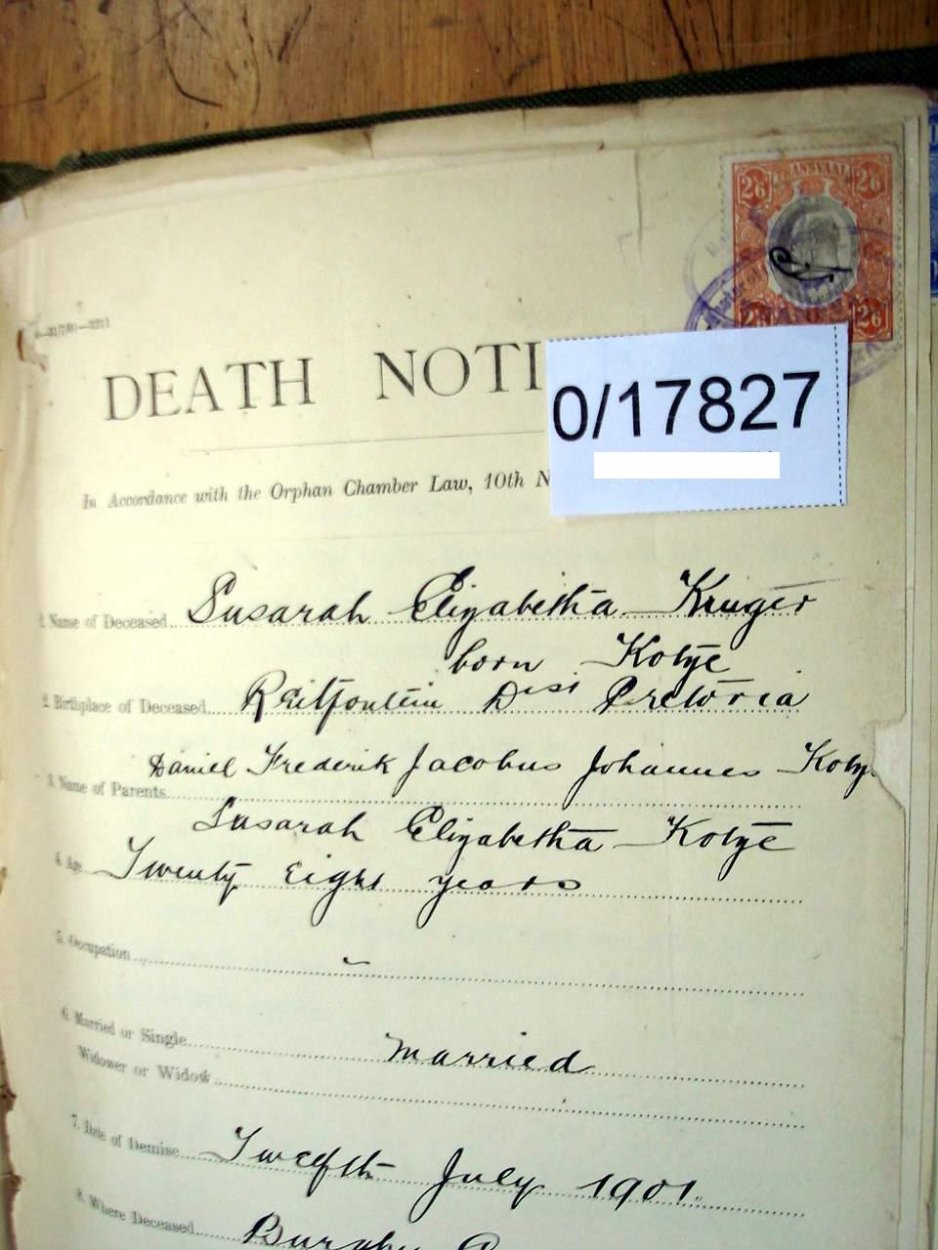 2/6 TRANSVAAL 2/6
2/6 2/6
DEATH NOTI
0/17827
In Accordance with the Orphan Chamber Law, 10th N
1. Name of Deceased Susarah Elizabetha Kruger
born Kotze
2. Birthplace of Deceased Reitfontein Dist Pretoria
Daniel Frederik Jacobus Johannes Kotz
3. Name of Parents
Susarah Elizabetha Kotze
4. Age Twenty Eight years
5. Occupation
6. Married or Single Married
Widower or Widow
7. Date of Demise Twelfth July 1901.
8. Where Deceased